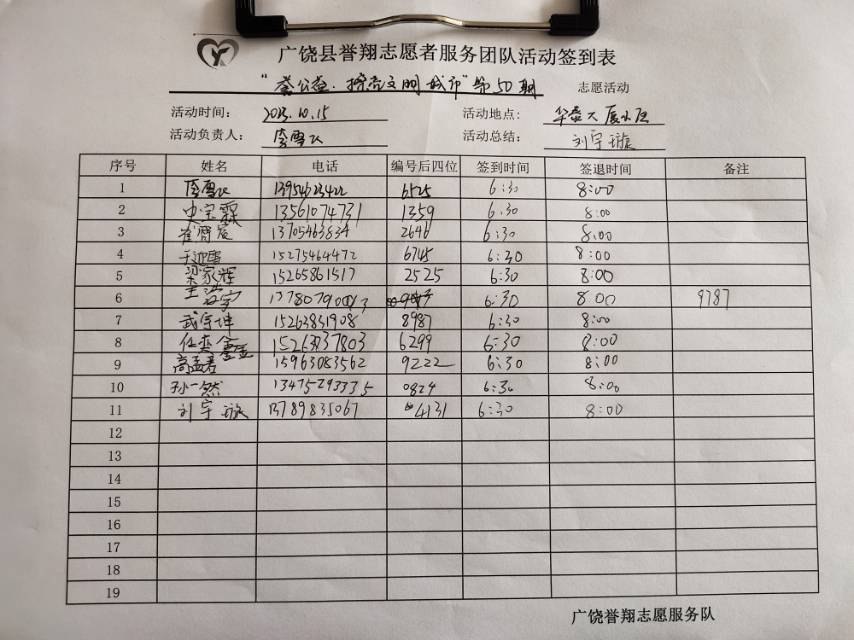 广饶县誉翔志愿者服务团队活动签到表
"誉公益·擦亮文明城市"第50期 志愿活动
活动时间： 2023.10.15 活动地点： 华泰大厦
活动负责人： 活动总结： 刘宇璇
序号 姓名 电话 编号后四位 签到时间 签退时间 备注
1 6525 6:30 8:00
2 史宝霖 13561074731 1359 6:30 8:00
3 13705463834 2646 6:30 8:00
4 15275464472 6745 6:30 8:00
5 梁家辉 15265861517 2525 6:30 8:00
6 6:30 8:00 9787
7 武宇坤 15263831908 8987 6:30 8:00
8 15263937803 6299 6:30 8:00
9 高孟君 15963083562 9222 6:30 8:00
10 孙一然 13475293335 0824 6:30 8:00
11 刘宇璇 13789835067 4131 6:30 8:00
12
13
14
15
16
17
18
19
广饶誉翔志愿服务队